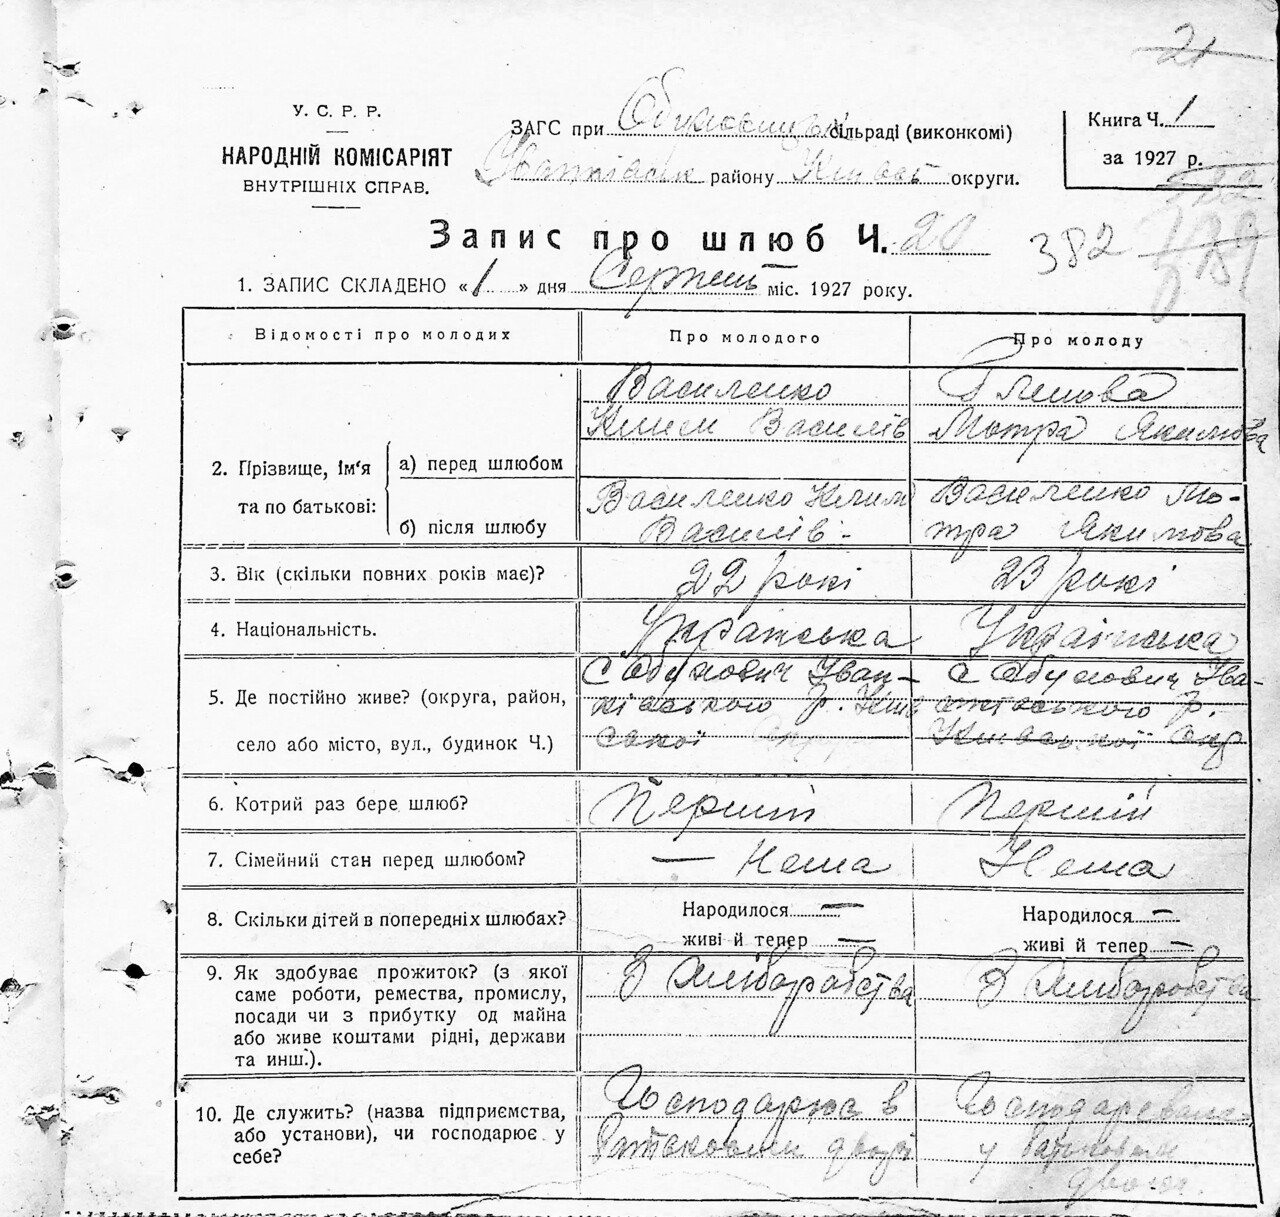 21
У. С. Р. Р.
НАРОДНІЙ КОМІСАРІЯТ
ВНУТРІШНІХ СПРАВ.
ЗАГС при Обуховицьк сільраді (виконкомі)
Іванківськ району Київськ округи.
Книга Ч. 1
за 1927 р.
Запис про шлюб Ч. 20
382
1. ЗАПИС СКЛАДЕНО «1» дня Серпень міс. 1927 року.
Відомості про молодих Про молодого Про молоду
2. Прізвище, Ім'я та по батькові:
а) перед шлюбом
Василенко
Клим Василів
Мотра Якимова
б) після шлюбу
Василенко Клим
Василів -
Василенко Мо-
тра Якимова
3. Вік (скільки повних років має)? 22 рокі 23 рокі
4. Національність. Українська Українська
5. Де постійно живе? (округа, район,
село або місто, вул., будинок Ч.)
с Обуховичі Іван-
ківського р. Київ
ської окр
с Обуховичі Іва-
нківського р.
Київської окр
6. Котрий раз бере шлюб? Перший Перший
7. Сімейний стан перед шлюбом? — Нема Нема
8. Скільки дітей в попередніх шлюбах?
Народилося —
живі й тепер —
Народилося —
живі й тепер —
9. Як здобуває прожиток? (з якої
саме роботи, ремества, промислу,
посади чи з прибутку од майна
або живе коштами рідні, держави
та инш.).
З хліборобства
З хліборобства
10. Де служить? (назва підприємства,
або установи), чи господарює у
себе?
Господарює в
батьковим дворі
у батьковім
дворі.